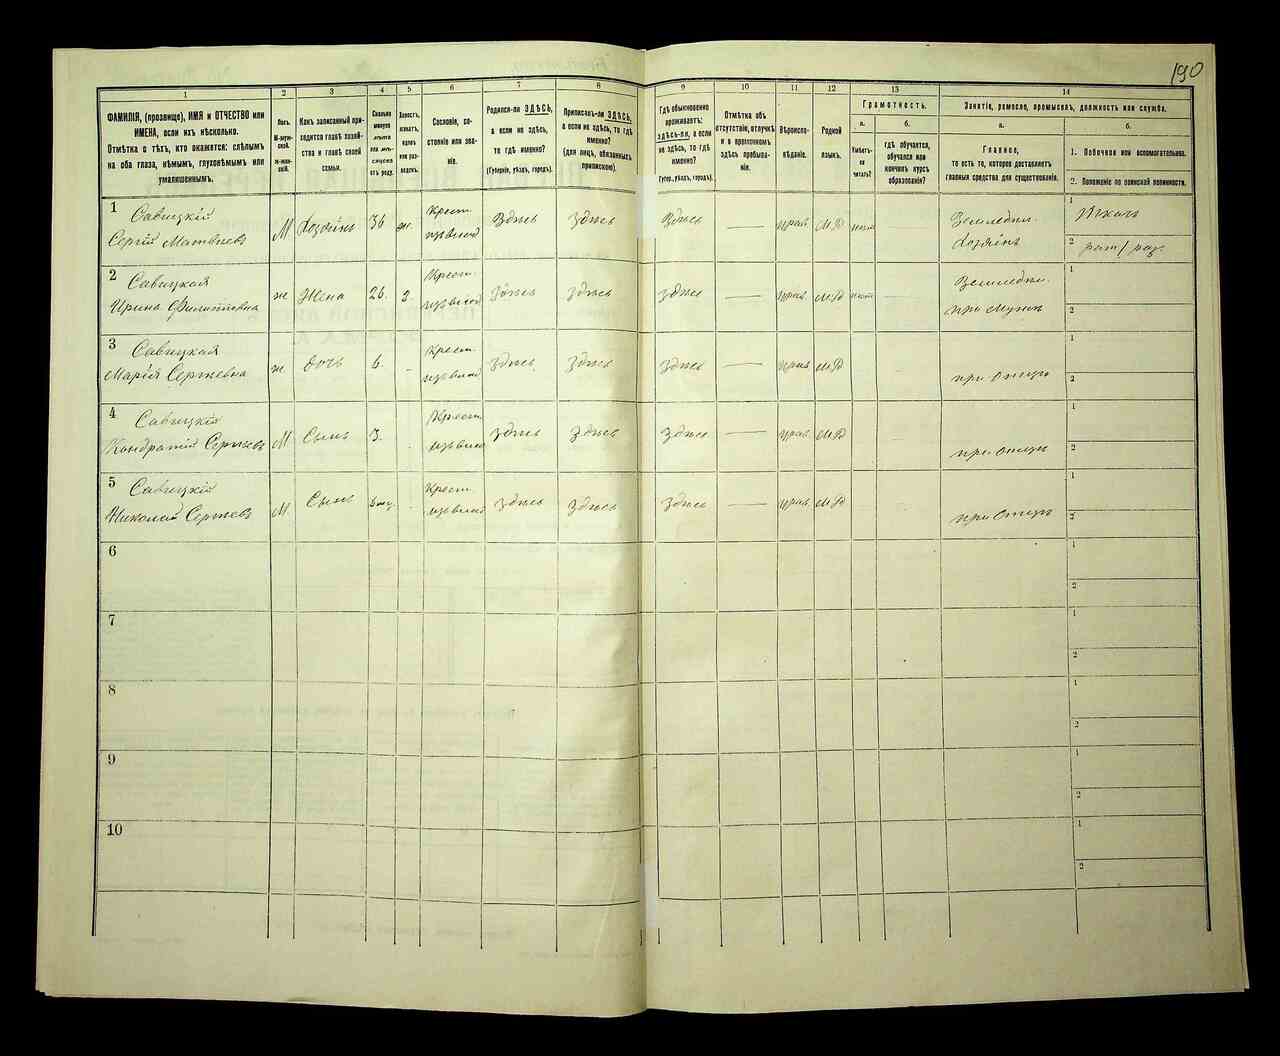 190
1 2 3 4 5 6 7 8 9 10 11 12 13 14
ФАМИЛІЯ, (прозвище), ИМЯ и ОТЧЕСТВО или
ИМЕНА, если ихъ нѣсколько.
Отмѣтка о тѣхъ, кто окажется: слѣпымъ
на оба глаза, нѣмымъ, глухонѣмымъ или
умалишеннымъ.
Полъ.
М-муж-
ской.
Ж-жен-
скій.
Какъ записанный при-
ходится главѣ хозяй-
ства и главѣ своей
семьи.
Сколько
минуло
лѣтъ
или мѣ-
сяцевъ
отъ роду.
Холостъ,
женатъ,
вдовъ
или раз-
веденъ.
Сословіе, со-
стояніе или зва-
ніе.
Родился-ли ЗДѢСЬ,
а если не здѣсь,
то гдѣ именно?
(Губернія, уѣздъ, городъ).
Приписанъ-ли ЗДѢСЬ,
а если не здѣсь, то гдѣ
именно?
(для лицъ, обязанныхъ
припискою).
Гдѣ обыкновенно
проживаетъ:
здѣсь-ли, а если
не здѣсь, то гдѣ
именно?
(Губер., уѣздъ, городъ).
Отмѣтка объ
отсутствіи, отлучкѣ
и о временномъ
здѣсь пребыва-
ніи.
Вѣроиспо-
вѣданіе.
Родной
языкъ.
Грамотность.
а.
Умѣетъ-
ли
читать?
б.
гдѣ обучается,
обучался или
кончилъ курсъ
образованія?
Занятіе, ремесло, промыселъ, должность или служба.
а.
Главное,
то есть то, которое доставляетъ
главныя средства для существованія.
б.
1. Побочное или вспомогательное.
2. Положеніе по воинской повинности.
1 Савицкій
Сергій Матвѣевъ М Хозяинъ 36 ж. Крест. Здѣсь Здѣсь Здѣсь — прав М.Р нѣтъ Земледѣл. Хозяинъ 1 2
2 Савицкая
Ирина Филиповна ж Жена 26. З. Крест. Здѣсь Здѣсь Здѣсь — прав. М.Р нѣтъ Земледѣл. при мужѣ 1 2
3 Савицкая
Марія Сергѣевна ж. дочь 6. Крест. Здѣсь Здѣсь Здѣсь — прав М.Р при отцѣ 1 2
4 Савицкій
Кондратій Сергѣевъ М Сынъ 3. Крест. Здѣсь Здѣсь Здѣсь — прав. М.Р при отцѣ 1 2
5 Савицкій
Николай Сергѣевъ М. Сынъ Крест. Здѣсь Здѣсь Здѣсь — прав. М.Р при отцѣ 1 2
6 1 2
7 1 2
8 1 2
9 1 2
10 1 2